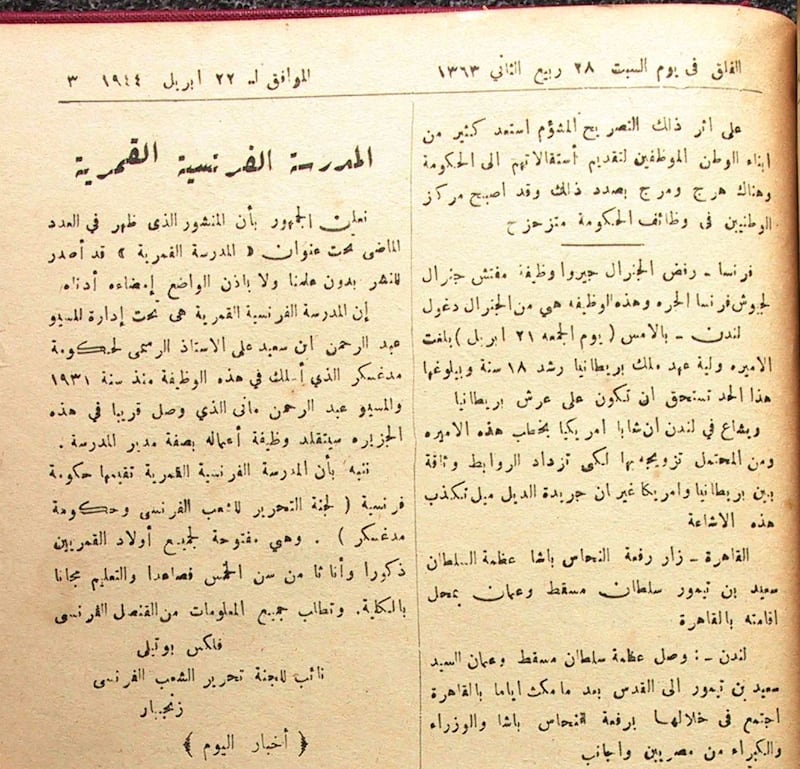 الفلق فى يوم السبت ٢٨ ربيع الثاني ١٣٦٣ الموافق لـ ٢٢ ابريل ١٩٤٤ ٣
على اثر ذالك التصريح المشؤم استعد كثير من
ابناء الوطن الموظفين لتقديم أستقالاتهم الى الحكومة
وهناك هرج ومرج بصدد ذالك وقد اصبح مركز
الوطنيين فى وظائف الحكومة متزحزح
فرنسا ـ رفض الجنرال جيروا وظيفة مفتش جنرال
لجيوش فرنسا الحره وهذه الوظيفه هي من الجنرال دغول
لندن ـ بالامس ( يوم الجمعه ٢١ ابريل ) بلغت
الاميره ولية عهد ملك بريطانيا رشد ١٨ سنة وببلوغها
هذا الحد تستحق ان تكون على عرش بريطانيا
ويشاع في لندن أن شابا امريكيا يخطب هذه الاميره
ومن المحتمل تزويجه بها لكى تزداد الروابط وثاقة
بين بريطانيا وامريكا غير ان جريدة الديل ميل تكذب
هذه الاشاعة
القاهرة ـ زار رفعة النحاس باشا عظمة السلطان
سعيد بن تيمور سلطان مسقط وعمان بمحل
اقامته بالقاهرة
لندن ـ : وصل عظمة سلطان مسقط وعمان السيد
سعيد بن تيمور الى القدس بعد ما مكث اياما بالقاهرة
اجتمع فى خلالها برفعة النحاس باشا والوزراء
والكبراء من مصريين واجانب
المدرسة الفرنسية القمرية
نعلن الجمهور بأن المنشور الذى ظهر في العدد
الماضى تحت عنوان « المدرسة القمرية » قد أصدر
للنشر بدون علمنا ولا باذن الواضع إمضاءه أدناه
إن المدرسة الفرنسية القمرية هى تحت إدارة المسيو
عبد الرحمن ابن سعيد على الاستاذ الرسمى لحكومة
مدغسكر الذي أسلك في هذه الوظيفة منذ سنة ١٩٣١
والمسيو عبد الرحمن مانى الذي وصل قريبا في هذه
الجزيره سيتقلد وظيفة أعماله بصفة مدير المدرسة .
ننبه بأن المدرسة الفرنسية القمرية تقيمها حكومة
فرنسية ( لجنة التحرير للشعب الفرنسى وحكومة
مدغسكر ) . وهي مفتوحة لجميع أولاد القمريين
ذكورا وأناثا من سن الخمس فصاعدا والتعليم مجانا
بالكلية . وتطلب جميع المعلومات من القنصل الفرنسى
فلكس بوتلى
نائب للجنة تحرير الشعب الفرنسى
زنجبار
﴿ أخبار اليوم ﴾